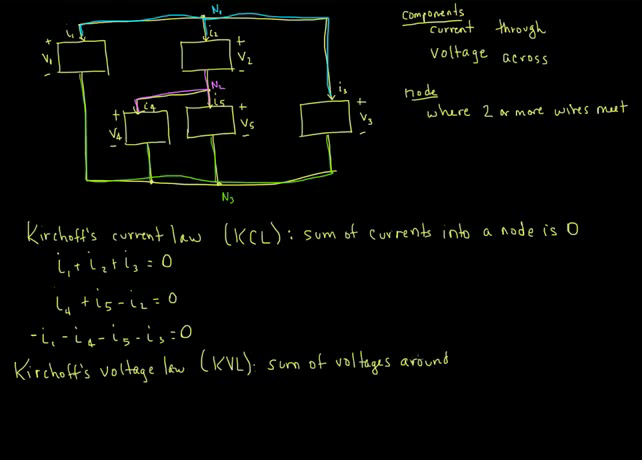 N₁
i₁
i₂
+ V₁ -
+ V₂ -
N₂
i₄
i₅
i₃
+ V₄ -
+ V₅ -
+ V₃ -
N₃
Components
current through
voltage across
node
where 2 or more wires meet
Kirchoff's current law (KCL): sum of currents into a node is 0
i₁ + i₂ + i₃ = 0
i₄ + i₅ - i₂ = 0
-i₁ - i₄ - i₅ - i₃ = 0
Kirchoff's voltage law (KVL): sum of voltages around